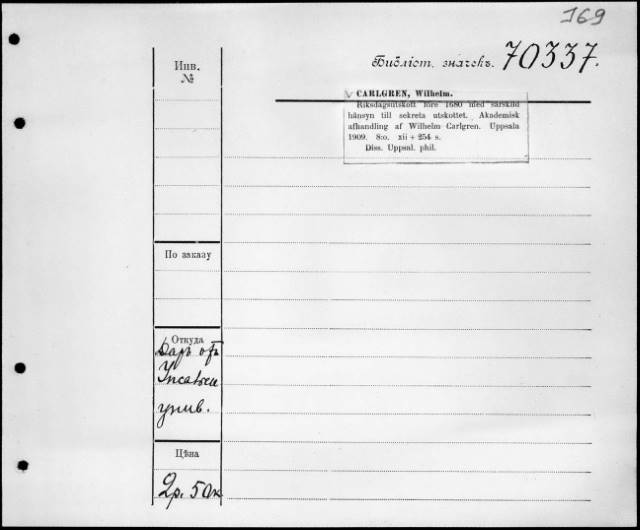 169
Библіот. значекъ. 70337.
Инв.
№
CARLGREN, Wilhelm.
Riksdagsutskott före 1680 med särskild
hänsyn till sekreta utskottet. Akademisk
afhandling af Wilhelm Carlgren. Uppsala
1909. 8:o. xii + 254 s.
Diss. Uppsal. phil.
По заказу
Откуда
Даръ отъ
унив.
Цѣна
2р. 50к